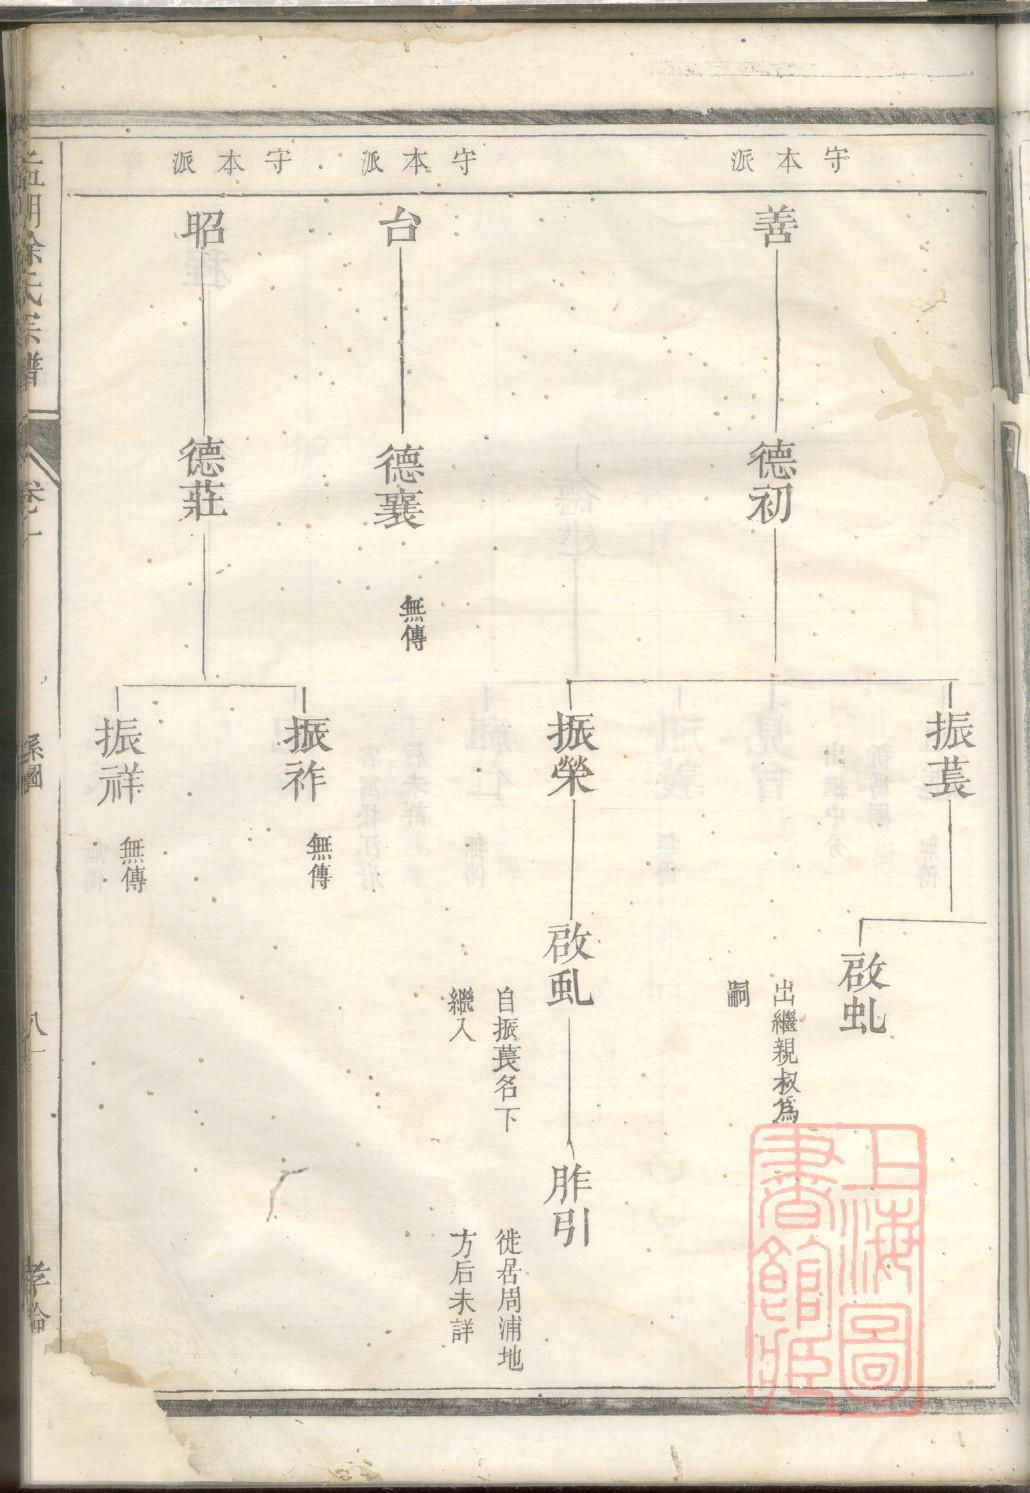 守本派
善
德初
振萇
啟虬
出繼親叔爲
嗣
振榮
啟虬
自振萇名下
繼入
胙引
徙居周浦地
方后未詳
守本派
台
德襄
無傳
守本派
昭
德莊
振祚
無傳
振祥
無傳
徐氏宗譜
卷一
系圖
上海圖
書館藏